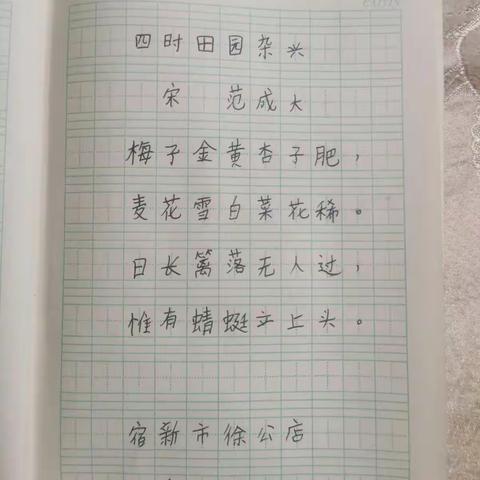 四时田园杂兴
宋 范成大
梅子金黄杏子肥，
麦花雪白菜花稀。
日长篱落无人过，
惟有蜻蜓立上头。
宿新市徐公店